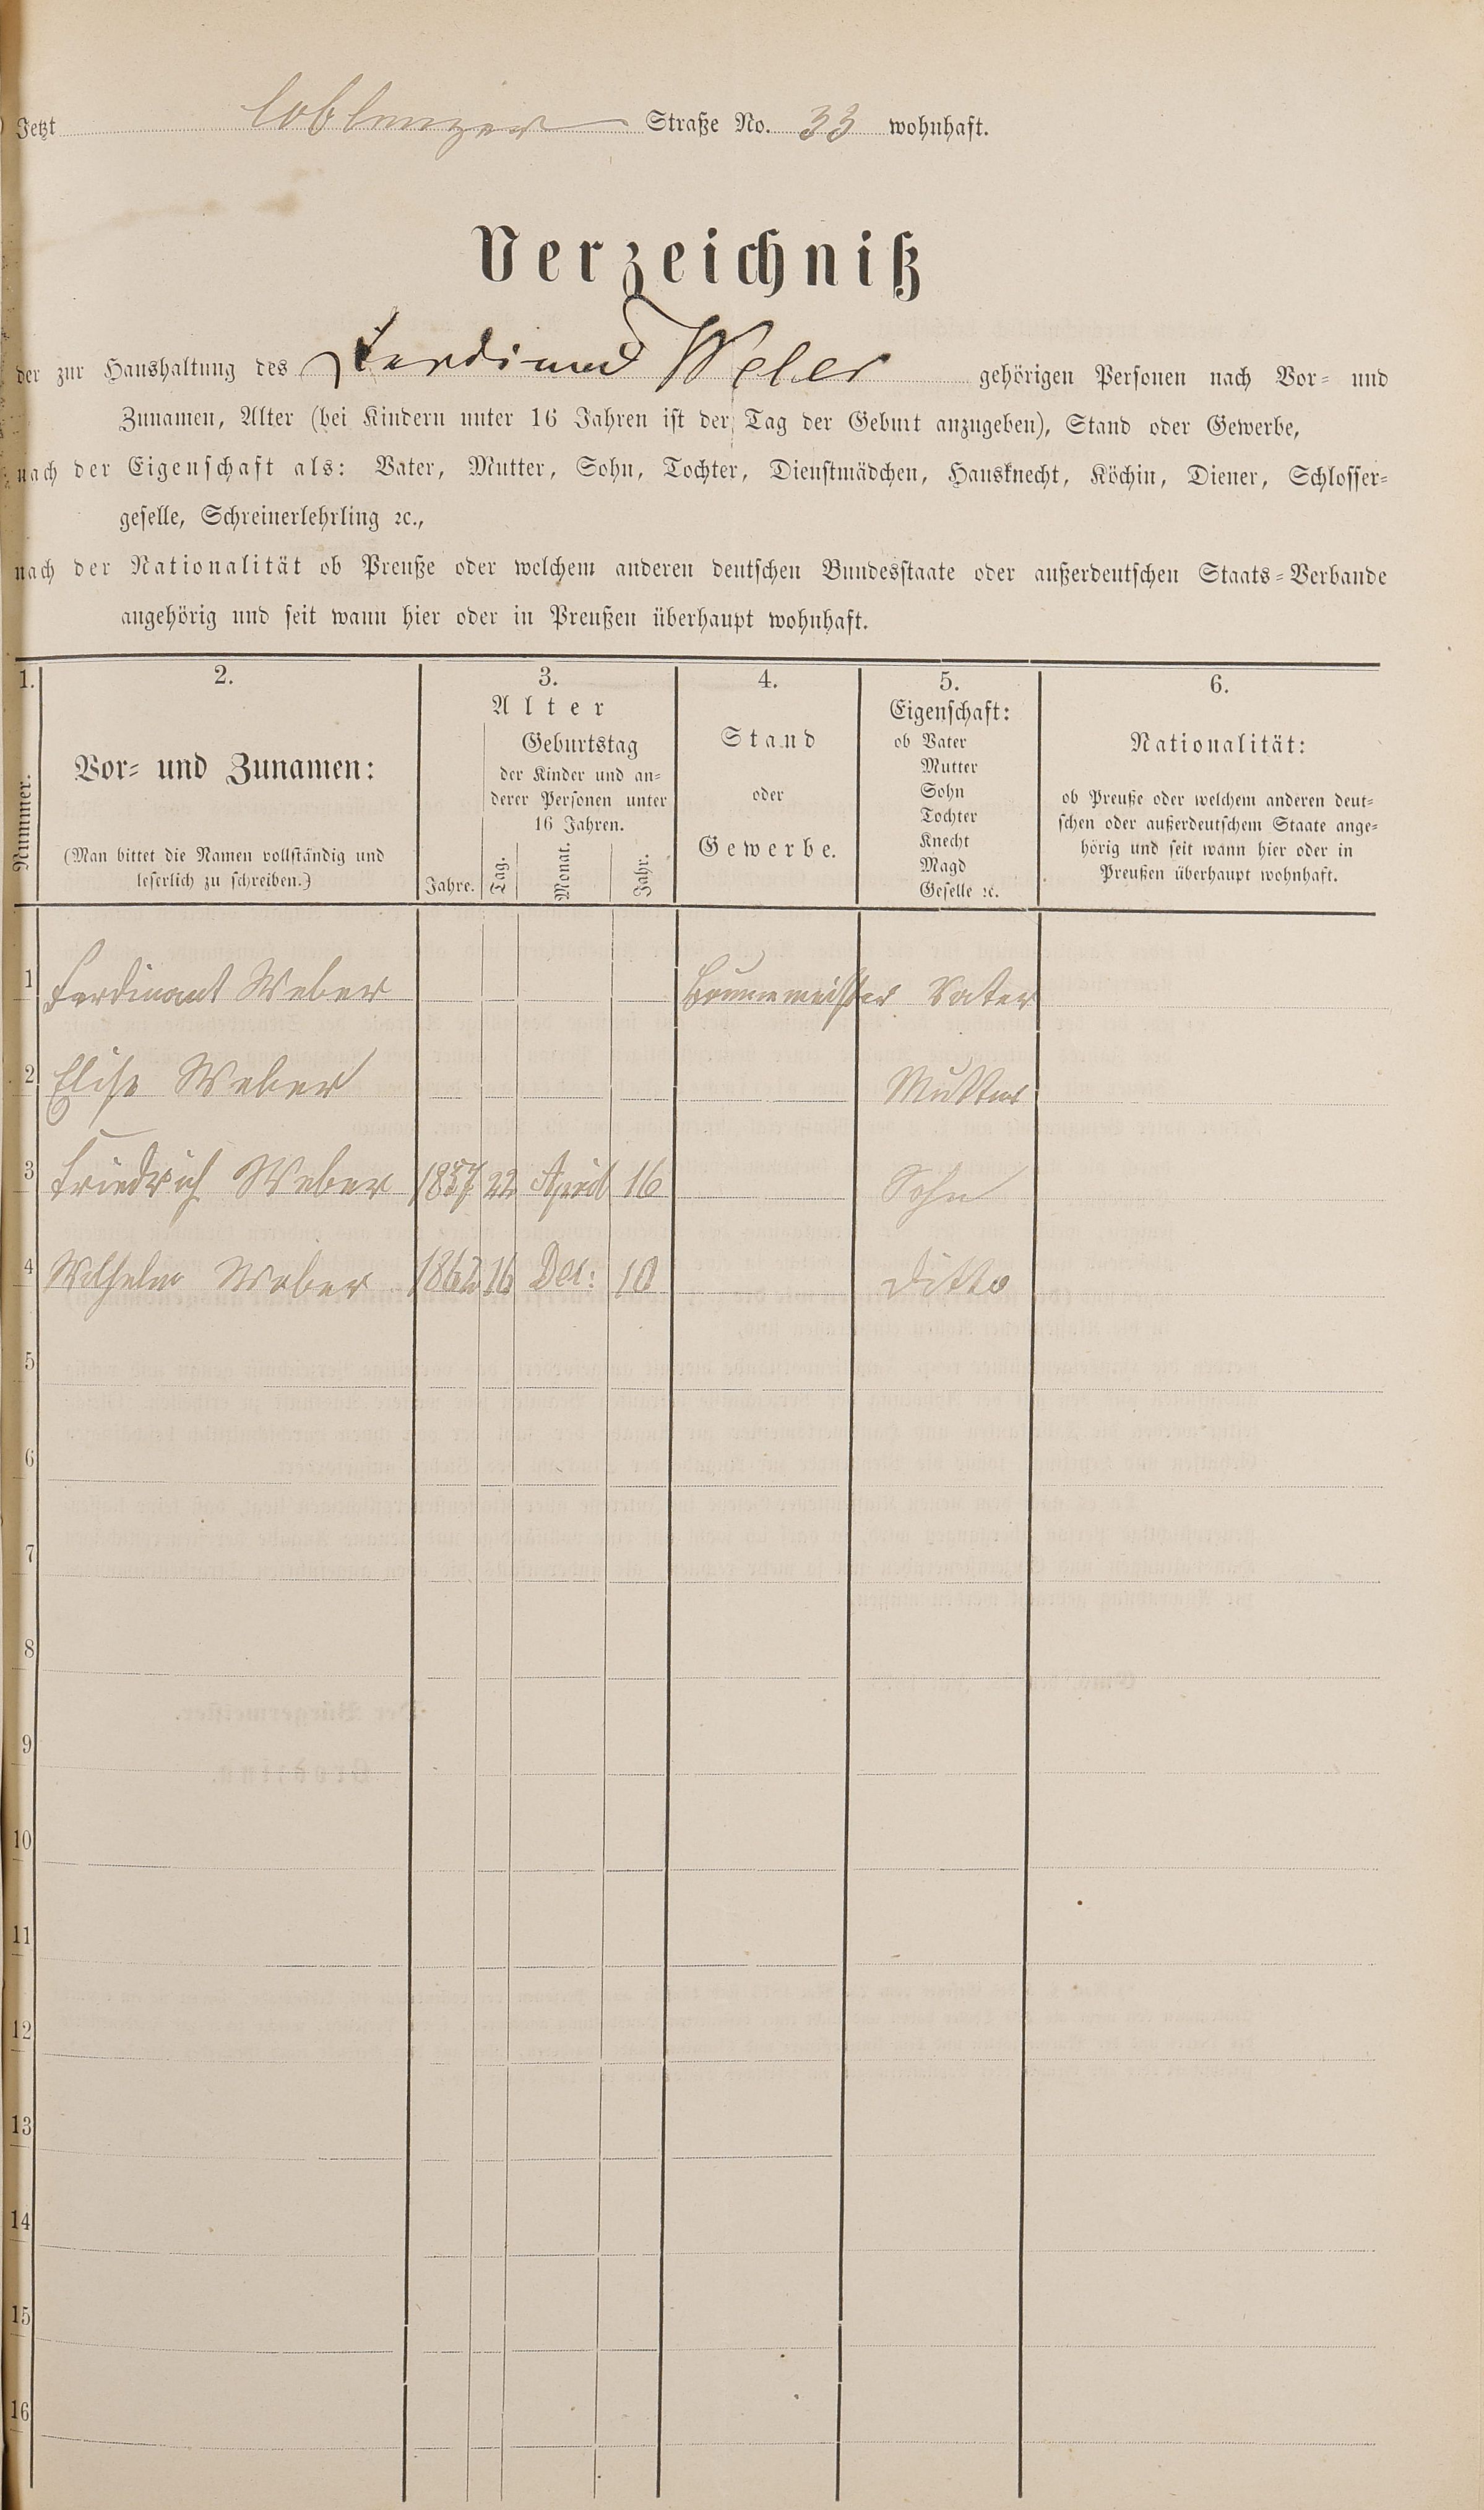 Jetzt Coblenzer Straße No. 33 wohnhaft.
Verzeichniß
der zur Haushaltung des Ferdinand Weber gehörigen Personen nach Vor- und
Zunamen, Alter (bei Kindern unter 16 Jahren ist der Tag der Geburt anzugeben), Stand oder Gewerbe,
nach der Eigenschaft als: Vater, Mutter, Sohn, Tochter, Dienstmädchen, Hausknecht, Köchin, Diener, Schlosser-
geselle, Schreinerlehrling ꝛc.,
nach der Nationalität ob Preuße oder welchem anderen deutschen Bundesstaate oder außerdeutschen Staats-Verbande
angehörig und seit wann hier oder in Preußen überhaupt wohnhaft.
1.
Nummer.
2.
Vor- und Zunamen:
(Man bittet die Namen vollständig und
leserlich zu schreiben.)
3.
Alter
Jahre.
Geburtstag
der Kinder und an-
derer Personen unter
16 Jahren.
Tag.
Monat.
Jahr.
4.
Stand
oder
Gewerbe.
5.
Eigenschaft:
ob Vater
Mutter
Sohn
Tochter
Knecht
Magd
Geselle ꝛc.
6.
Nationalität:
ob Preuße oder welchem anderen deut-
schen oder außerdeutschem Staate ange-
hörig und seit wann hier oder in
Preußen überhaupt wohnhaft.
1 Ferdinant Weber Vater
2 Elise Weber Mutter
3 Friedrich Weber 1857 22 April 16 Sohn
4 Wilhelm Weber 1862 16 Dec: 10 Ditto
5
6
7
8
9
10
11
12
13
14
15
16